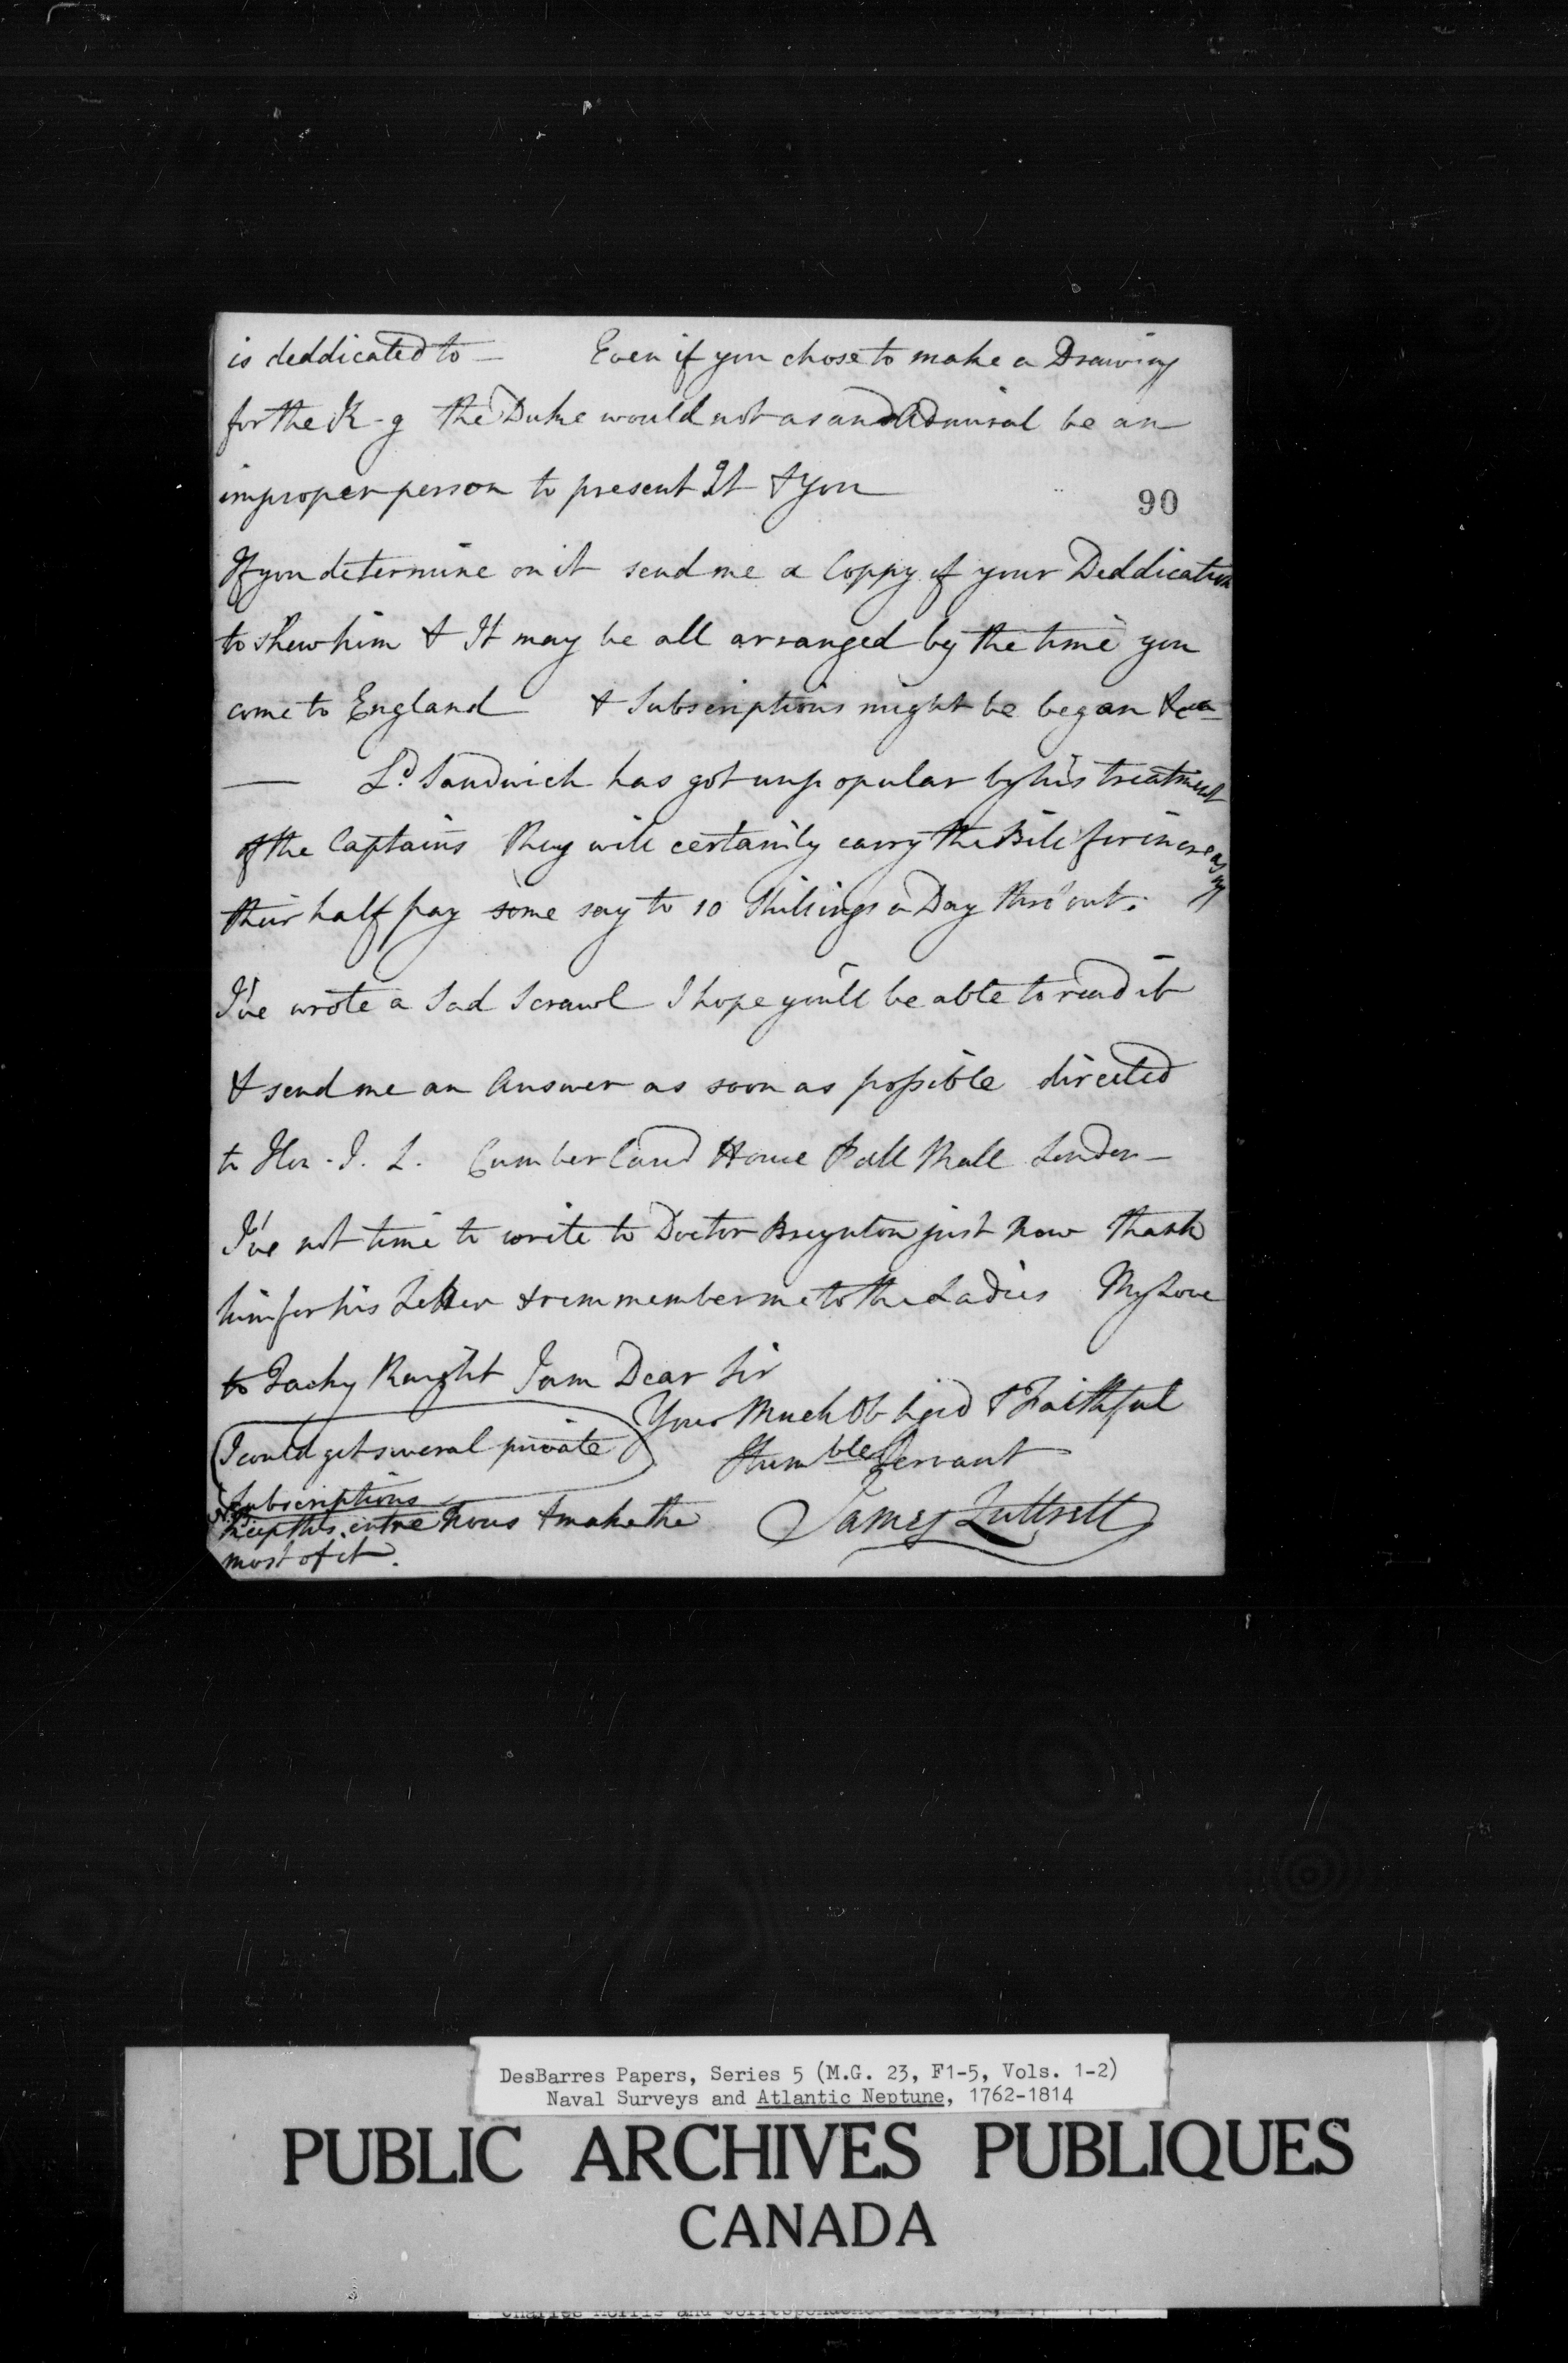 is deddicated to — Even if you chose to make a Drawing
for the K-g the Duke would not as an Admiral be an
improper person to present It & you
90
If you determine on it send me a Coppy of your Deddication
to shew him & It may be all arranged by the time you
come to England & Subscriptions might be began &ca
— Ld. Sandwich has got unpopular by his treatment
of the Captains they will certainly carry the Bill for increasing
their half pay some say to 10 Shillings a Day thro'out.
I've wrote a Sad Scrawl I hope you'll be able to read it
& send me an Answer as soon as possible directed
to Hon. J. L. Cumberland House Pall Mall London —
I've not time to write to Doctor Breynton just now thank
him for his Letter & remmember me to the Ladies My Love
to Jacky Knight I am Dear Sir
Your Much Obliged & Faithful
Humble Servant
James Luttrell
I could get several private
Subscriptions
NB Keep this entre Nous & make the
most of it.
DesBarres Papers, Series 5 (M.G. 23, F1-5, Vols. 1-2)
Naval Surveys and Atlantic Neptune, 1762-1814
PUBLIC ARCHIVES PUBLIQUES
CANADA